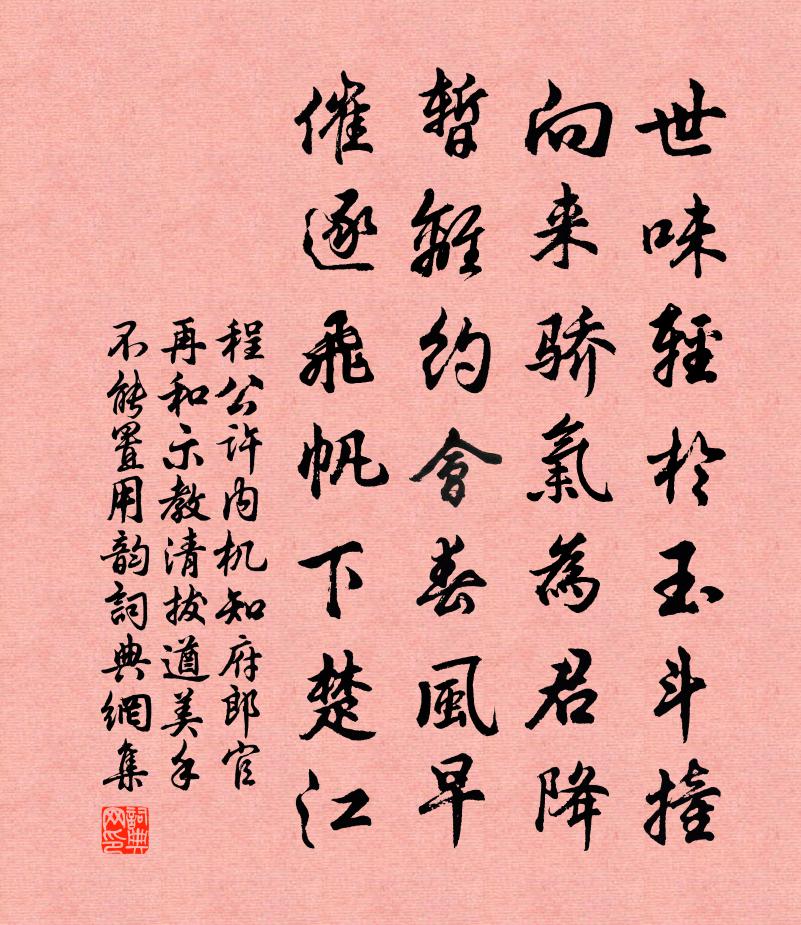 世味輕於玉斗撞
向来骄氣為君降
暫離約會春風早
催逐飛帆下楚江
程公许内机知府郎官
再和示教清拔遒美手
不能置用韵詞典網集
詞典网印